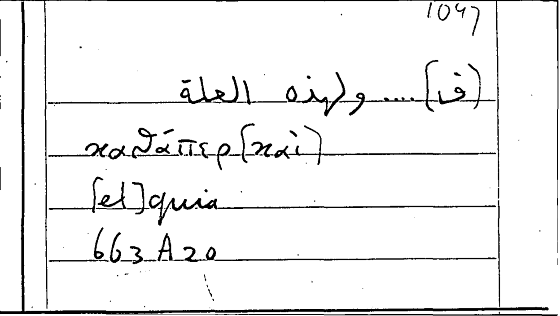 1047
(ف) .... ولهذه العلة
καθάπερ [καὶ]
[et] quia
663 A 20